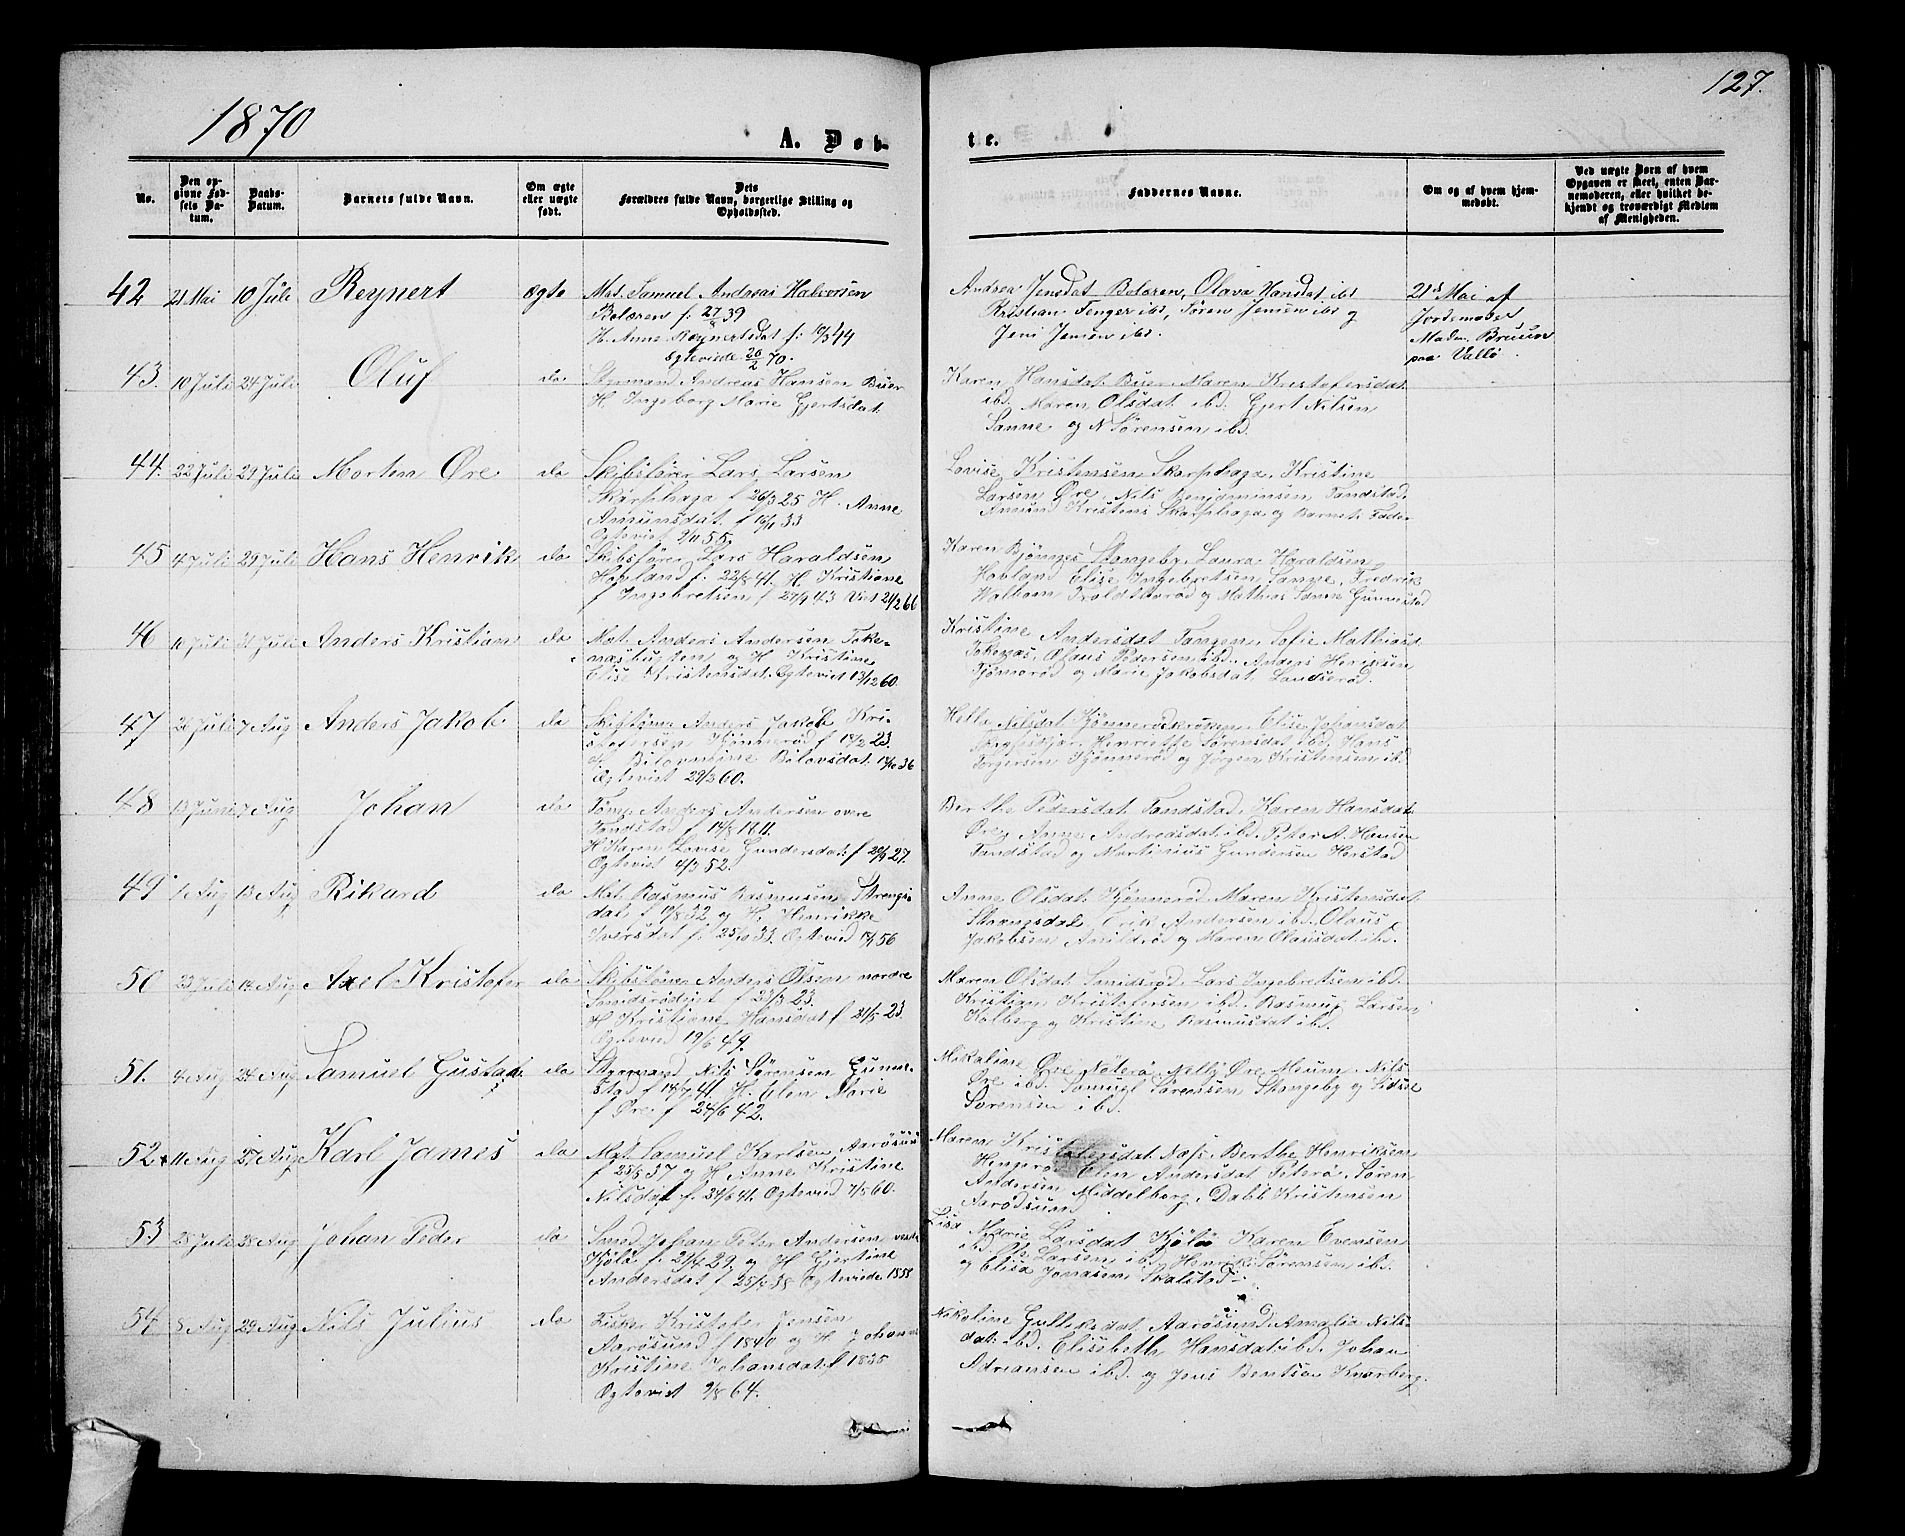 1870
127.
A. Døb-
te.
No.
Den op-
givne Fød-
sels Da-
tum.
Daabs-
Datum.
Barnets fulde Navn.
Om ægte
eller uægte
født.
Dets
Forældres fulde Navn, borgerlige Stilling og
Opholdssted.
Faddernes Navne.
Om og af hvem hjem-
medøbt.
Ved uægte Børn af hvem
Opgaven er skeet, enten Bar-
nemoderen, eller hvilket be-
kjendt og troværdigt Medlem
af Menigheden.
42 21 Mai 10 Juli Reynert ægte Mat. Samuel Andreas Halvorsen
Bolæren f: 27/8 39
H. Anne Reynertsdat f: 10/3 44
Egteviede 20/2 70.
Andrea Jensdat Bolæren, Olava Hansdat ibd
Kristian Fenger ibd, Søren Jensen ibd og
Jens Jensen ibd.
21de Mai af
Jordemoder
Madm. Bruun
paa Vallø.
43. 10 Juli 24 Juli Oluf do Styrmand Andreas Hansen Buer
H. Ingeborg Marie Gjertsdat.
Karen Hansdat. Buer, Maren Kristofersdat.
ibd. Maren Olsdat ibd. Gjert Nilsen
Sanne og N Sørensen ibd.
44. 22 Juli 29 Juli Morten Øre do Skibsfører Lars Larsen
Skarphaga f 26/3 25 H. Anne
Amunsdat. f 16/1 33
Egteviet 2/11 55.
Lovise Kristensen Skarphaga, Kristine
Larsen Øre, Nils Benjaminsen Tandstad,
Amund Kristens Skarphaga og Barnets Fader
45 4 Juli 29 Juli Hans Henrik do Skibsfører Lars Haraldsen
Havland f. 22/8 41. H. Kristiane
f Ingebretsen f 27/9 43 Viet 24/2 66
Karen Bjønnes Stangeby, Laura Haraldsen
Havland Elise Ingebretsen Sanne, Fredrik
og Mathias Sanne Gunnestad
46 10 Juli 31 Juli Anders Kristian do Mat. Anders Andersen Toke-
næsbugten og H. Kristine
Elise Kristensdat. Egteviet 13/12 60.
Kristine Andersdat Tangen, Sofie Mathiasd
Tokenæs, Olaus Pedersen ibd., Anders Henriksen
og Marie Jakobsdat.
47 26 Juli 7 Aug Anders Jakob do Skibstømr Anders Jakob Kri-
stofersen Kjønnerød f 19/2 23.
Egteviet 29/2 60.
Helle Nilsdat Elise Johansdat
Henriette Sørensdat ibd, Hans
Torgersen Kjønnerød og Jørgen Kristensen ib.
48 13 Juni 7 Aug Johan do Tømr. Anders Andersen øvre
Tandstad f 14/8 1811.
H Karen Lovise Gundersdat. f 20/9 27.
Egteviet 4/3 52.
Berthe Pedersdat Tandstad, Karen Hansdat.
Øre, Anne Andreasdat. ibd. Peter A. Hansen
Tandstad og Martinius Gundersen Herstad
49 1 Aug 13 Aug Rikard do Mat. Rasmus Rasmussen Strengs-
dal f 19/8 32 og H. Henrikke
Iversdat f. 25/10 33. Egteviet 13/1 56
Anne Olsdat Kjønnerød Maren Kristensdat.
Strengsdal Erik Andersen ibd. Olaus
Jakobsen og Maren Olausdat. ibd.
50 23 Juli 14 Aug Axel Kristofer do Skibstømr Anders Olsen nordre
Smidsrød f 23/3 23.
H Kristiane Hansdat f 21/5 23.
Egteviet 19/6 49.
Maren Olsdat Smidsrød Lars Ingebretsen ibd.
Kristian Kristofersen ibd. Rasmus Larsen
Kolberg og Kristine Rasmusdat ibd.
51. 4 Aug 24 Aug Samuel Gustav do Styrmand Nils Sørensen Gunne-
stad f 18/7 41. H. Elen Marie
f Øre f 24/6 42.
Mikaline Øre Nøterø, Nelly Øre Meum. Nils
Øre ibd. Samuel Sørensen Stangeby og
Sørensen ibd.
52 11 Aug 27 Aug Karl James do Mat Samuel Karlsen Aarøsund
f 25/5 37 og H. Anne Kristine
Nilsdat f. 29/6 41. Egteviet 7/5 60.
Maren Kristofersdat. Næss. Berthe Henriksen
Elen Andersdat Peterø. Søren
Andersen Middelborg. Kristensen
Aarøsund
53 25 Juli 28 Aug Johan Peder do Smed Johan Peter Andersen vestre
Kjølø f. 21/4 29. og H Gjertine
Andersdat f 25/9 38 Egteviede 1858
Lisa Marie Larsdat Kjølø Karen Evensen
ibd. Larsen ibd. Henrik Sørensen ibd.
og Elisa Jonasen Skalstad.
54 5 Aug 29 Aug Nils Julius do Fisker Kristofer Jensen
Aarøsund f 1840 og H. Johanne
Kristine Johansdat: f 1835
Egteviet 9/8 64.
Nikoline Gulliksdat Aarøsund. Amalia Nils-
dat: ibd. Elisabeth Hansdat. ibd. Johan
Adriansen ibd. og Jens Bentsen Knarberg.